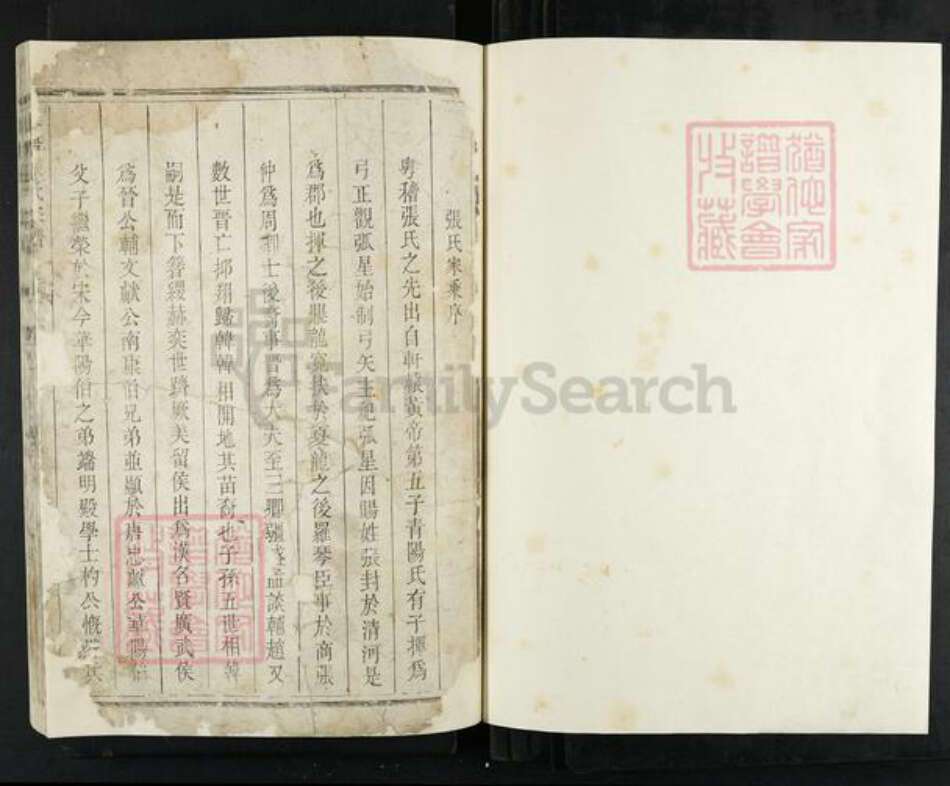 張氏家乘序
粵稽張氏之先出自軒轅黃帝第五子青陽氏有子揮為
弓正觀弧星始制弓矢主祀張星因賜姓張封於清河是
為郡也揮之後龍於夏龍之後羅琴臣事於商張
仲為周卿士後裔事晉為大夫至三卿孟談輔趙又
數世晉亡翔歸韓韓相開地其苗裔也子孫五世相韓
嗣是而下簪纓赫奕世躋厥美留侯出為漢名賢廣武侯
為晉公輔文獻公南康伯兄弟並顯於唐忠獻公華陽伯
父子繼榮於宋今華陽伯之弟端明殿學士杓公慨其
猶他家譜學會收藏
猶他家譜學會收藏
FamilySearch